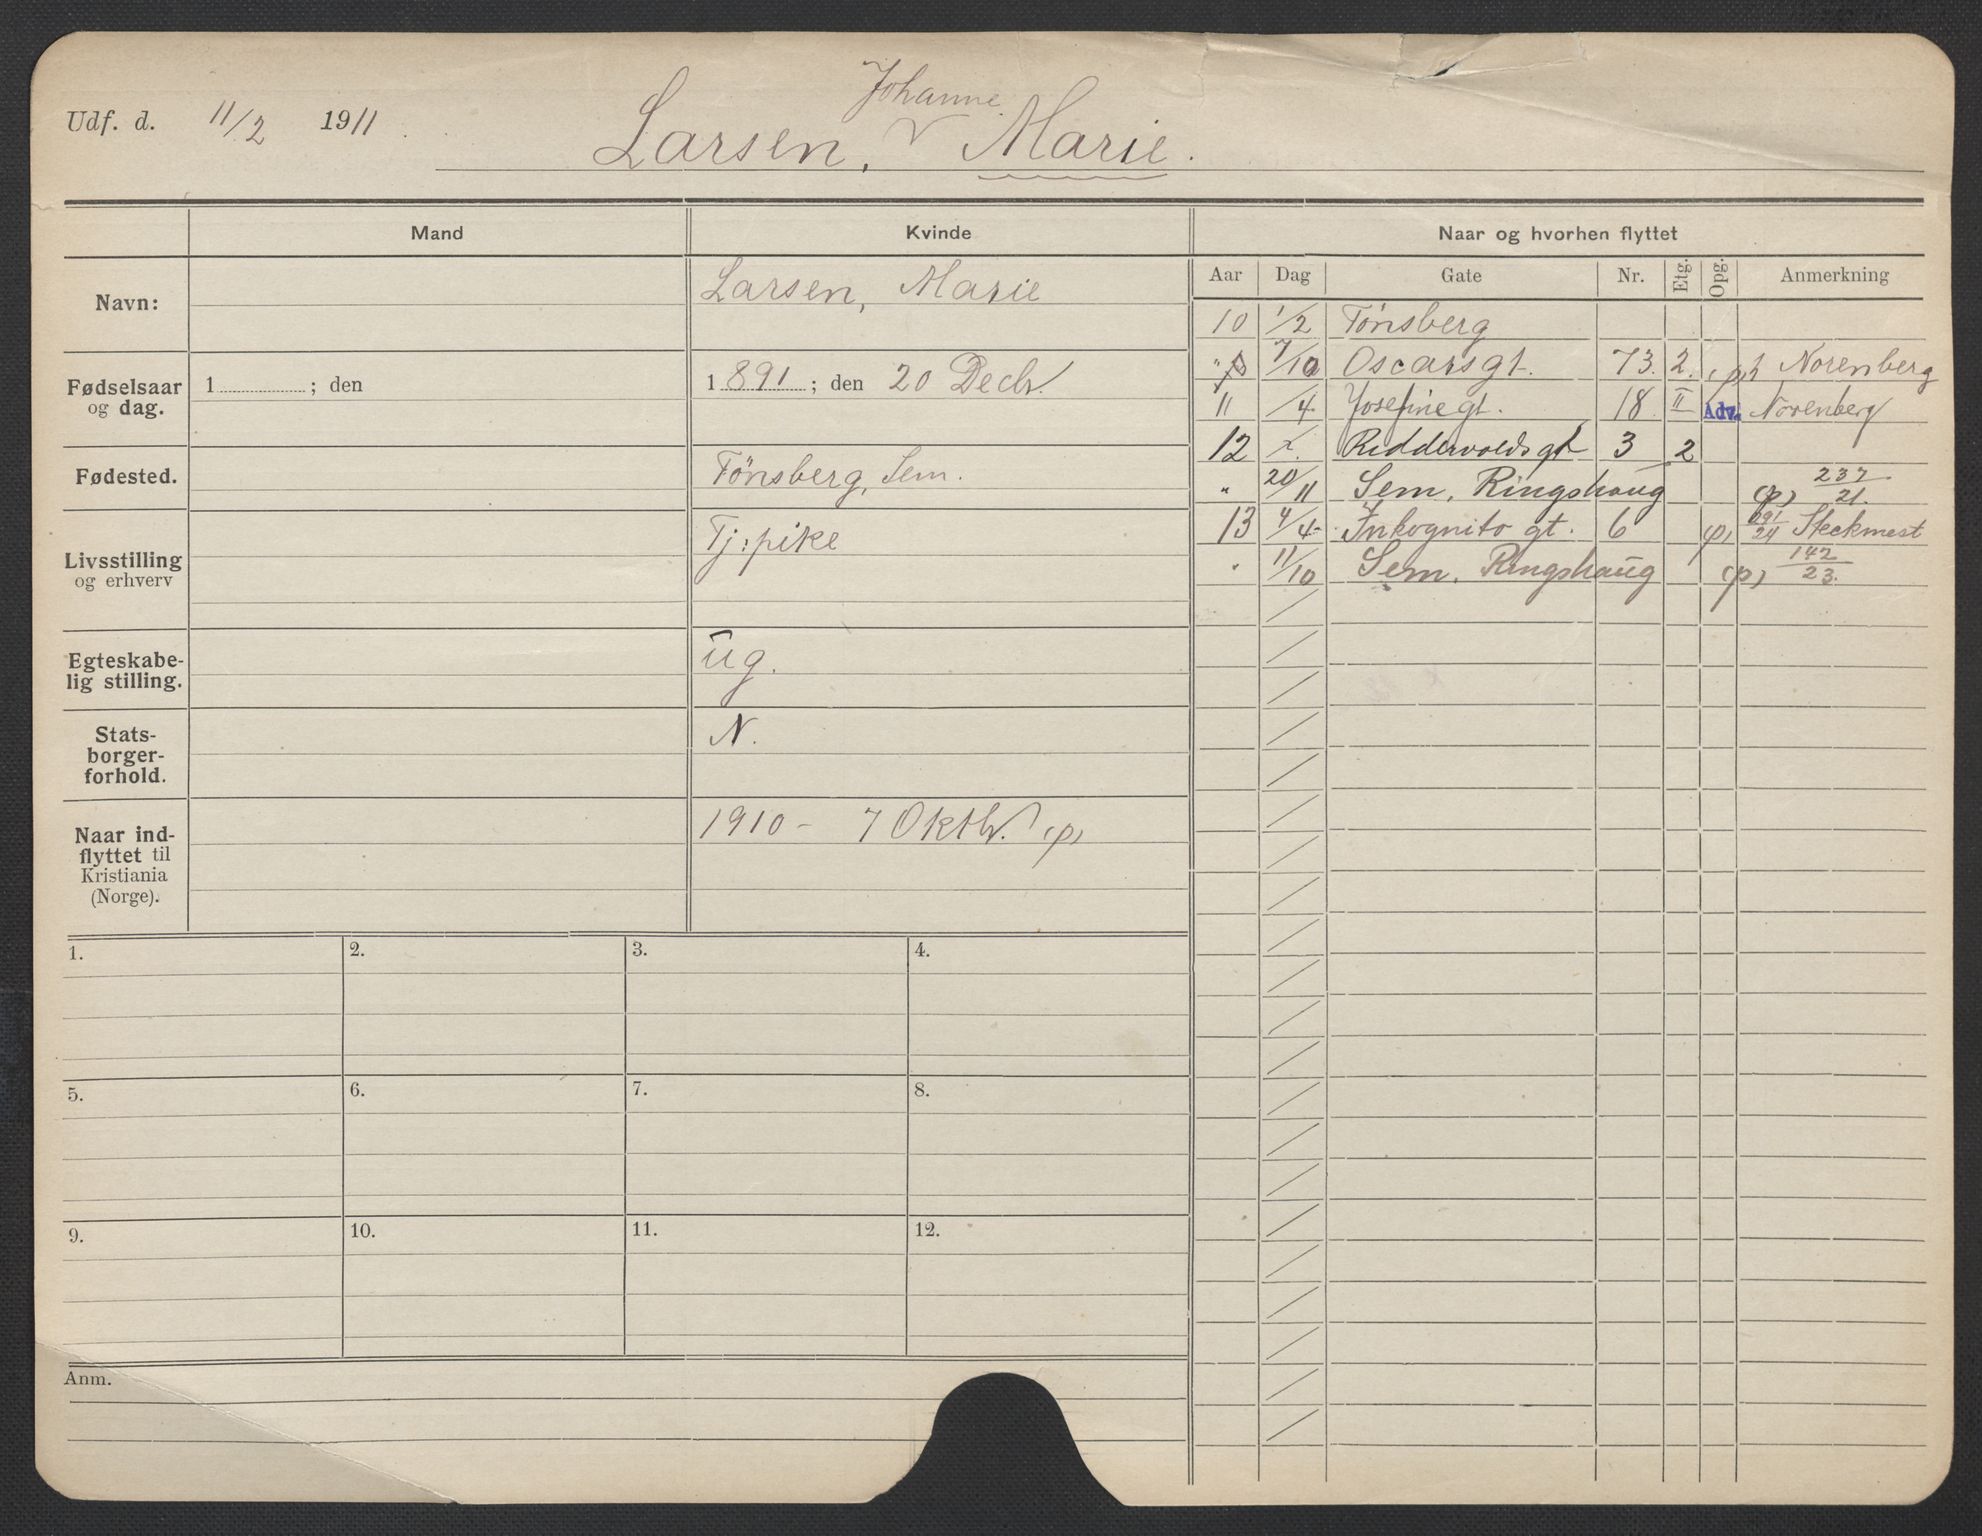 Johanne
Udf. d. 11/2 1911 Larsen, Marie.
Mand Kvinde Naar og hvorhen flyttet
Aar Dag Gate Nr. Etg. Opg. Anmerkning
Navn: Larsen, Marie
10 1/2 Tönsberg
" 7/10 Oscarsgt. 73. 2. Norenberg
Fødselsaar og dag. 1 ; den 1891 ; den 20 Decbr.
11 /4 Josefinegt. 18 II Adv. Norenberg
12 Riddervoldsgt 3 2
Fødested. Tönsberg, Sem.
" 20/11 Sem, Ringshaug (p) 237/21.
13 4/4 Inkognito gt. 6 (p) 291/24 Steckmest
Livsstilling og erhverv Tj:pike
" 11/10 Sem, Ringshaug (p) 142/23.
Egteskabe-
lig stilling. ug.
Stats-
borger-
forhold. N.
Naar ind-
flyttet til
Kristiania
(Norge). 1910 - 7 Oktbr. (p)
1. 2. 3. 4.
5. 6. 7. 8.
9. 10. 11. 12.
Anm.